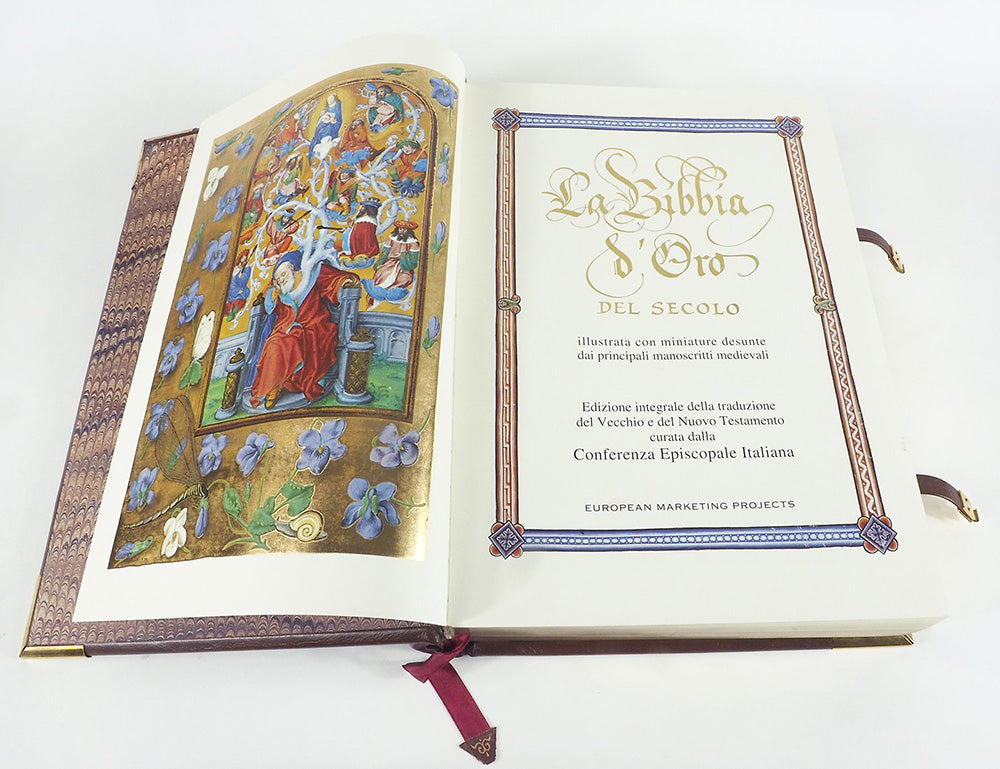 La Bibbia
d'Oro
DEL SECOLO
illustrata con miniature desunte
dai principali manoscritti medievali
Edizione integrale della traduzione
del Vecchio e del Nuovo Testamento
curata dalla
Conferenza Episcopale Italiana
EUROPEAN MARKETING PROJECTS